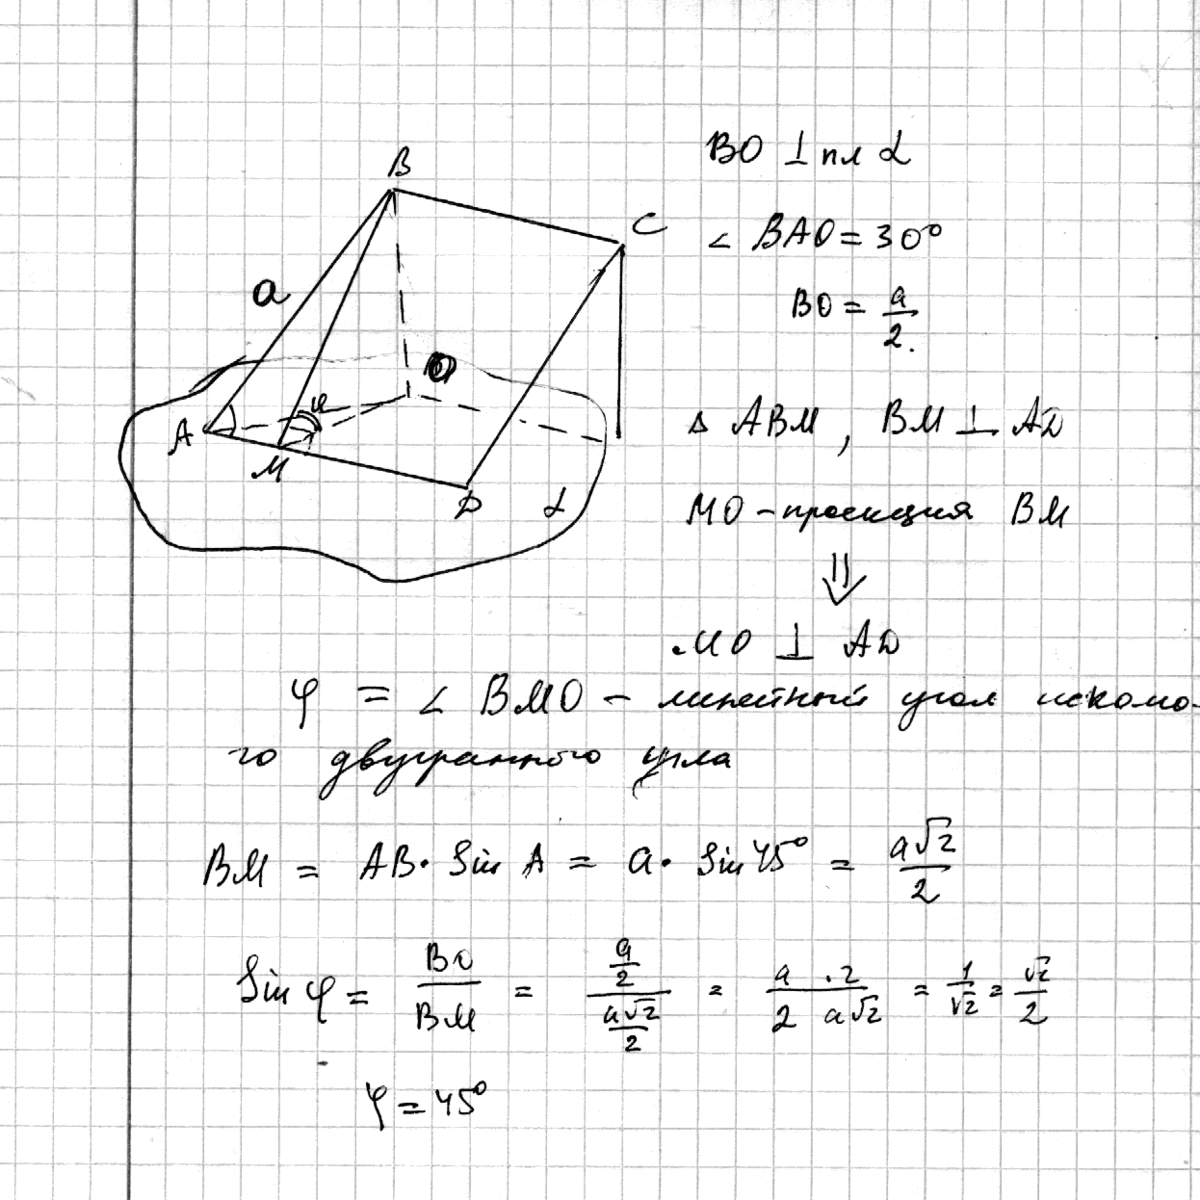 B
C
a
O
φ
A
M
D
α
BO ⊥ пл α
∠ BAO = 30°
BO = a/2.
Δ ABM, BM ⊥ AD
MO – проекция BM
⇓
MO ⊥ AD
φ = ∠ BMO – линейный угол искомо-
го двугранного угла
BM = AB · Sin A = a · Sin 45° = a√2/2
Sin φ = BO/BM = (a/2)/(a√2/2) = a · 2/2 a√2 = 1/√2 = √2/2
φ = 45°